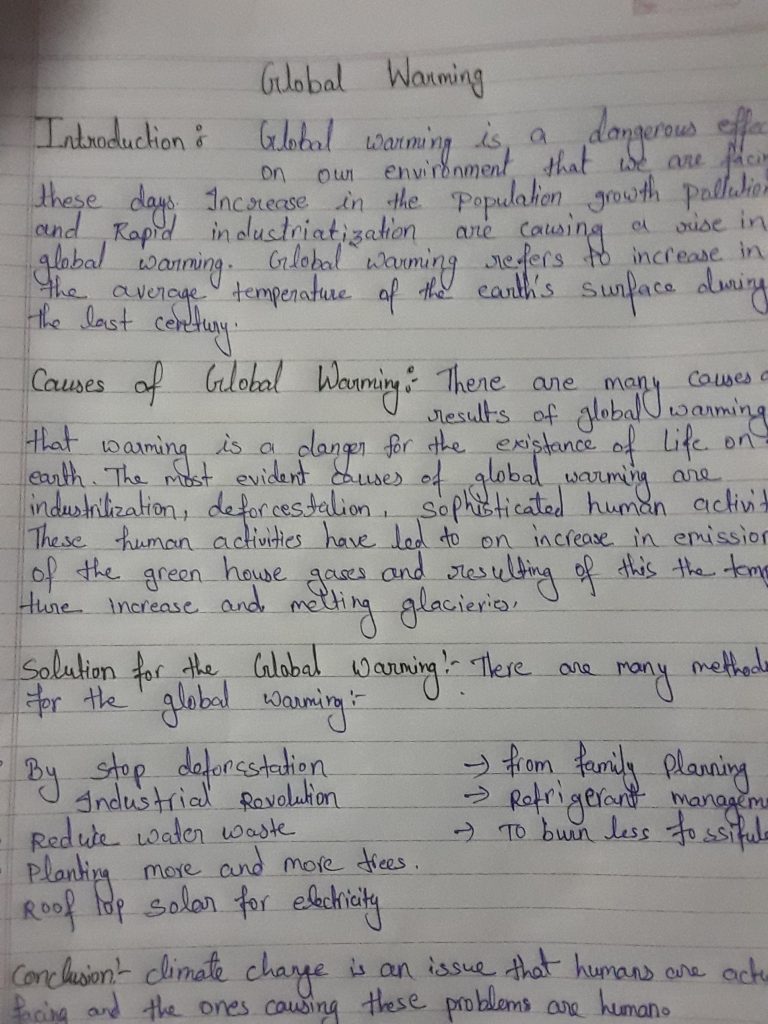 Global Warming
Introduction : Global warming is a dangerous effec
on our environment that we are facin
these days. Increase in the Population growth pollution
and Rapid industriatization are causing a rise in
global warming. Global warming refers to increase in
the average temperature of the earth's surface during
the last century.
Causes of Global Warming :- There are many causes
results of global warming
that warming is a danger for the existance of life on
earth. The most evident causes of global warming are
industrilization, deforcestalion, sophisticated human activit
These human activities have led to on increase in emission
of the green house gases and resulting of this the temp
ture increase and melting glacieries.
Solution for the Global Warming :- There are many method
for the global warming :-
By stop deforsstation → from family planning
Industrial Revolution → Refrigerant managem
Reduce water waste → To burn less fossifule
Planting more and more trees.
Roof top solar for electricity
Conclusion :- climate change is an issue that humans are actu
facing and the ones causing these problems are human.